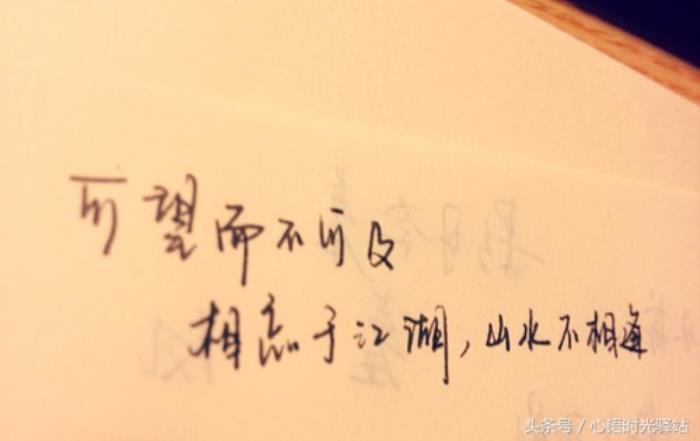 可望而不可及
相忘于江湖,山水不相逢
头条号 / 心语时光驿站